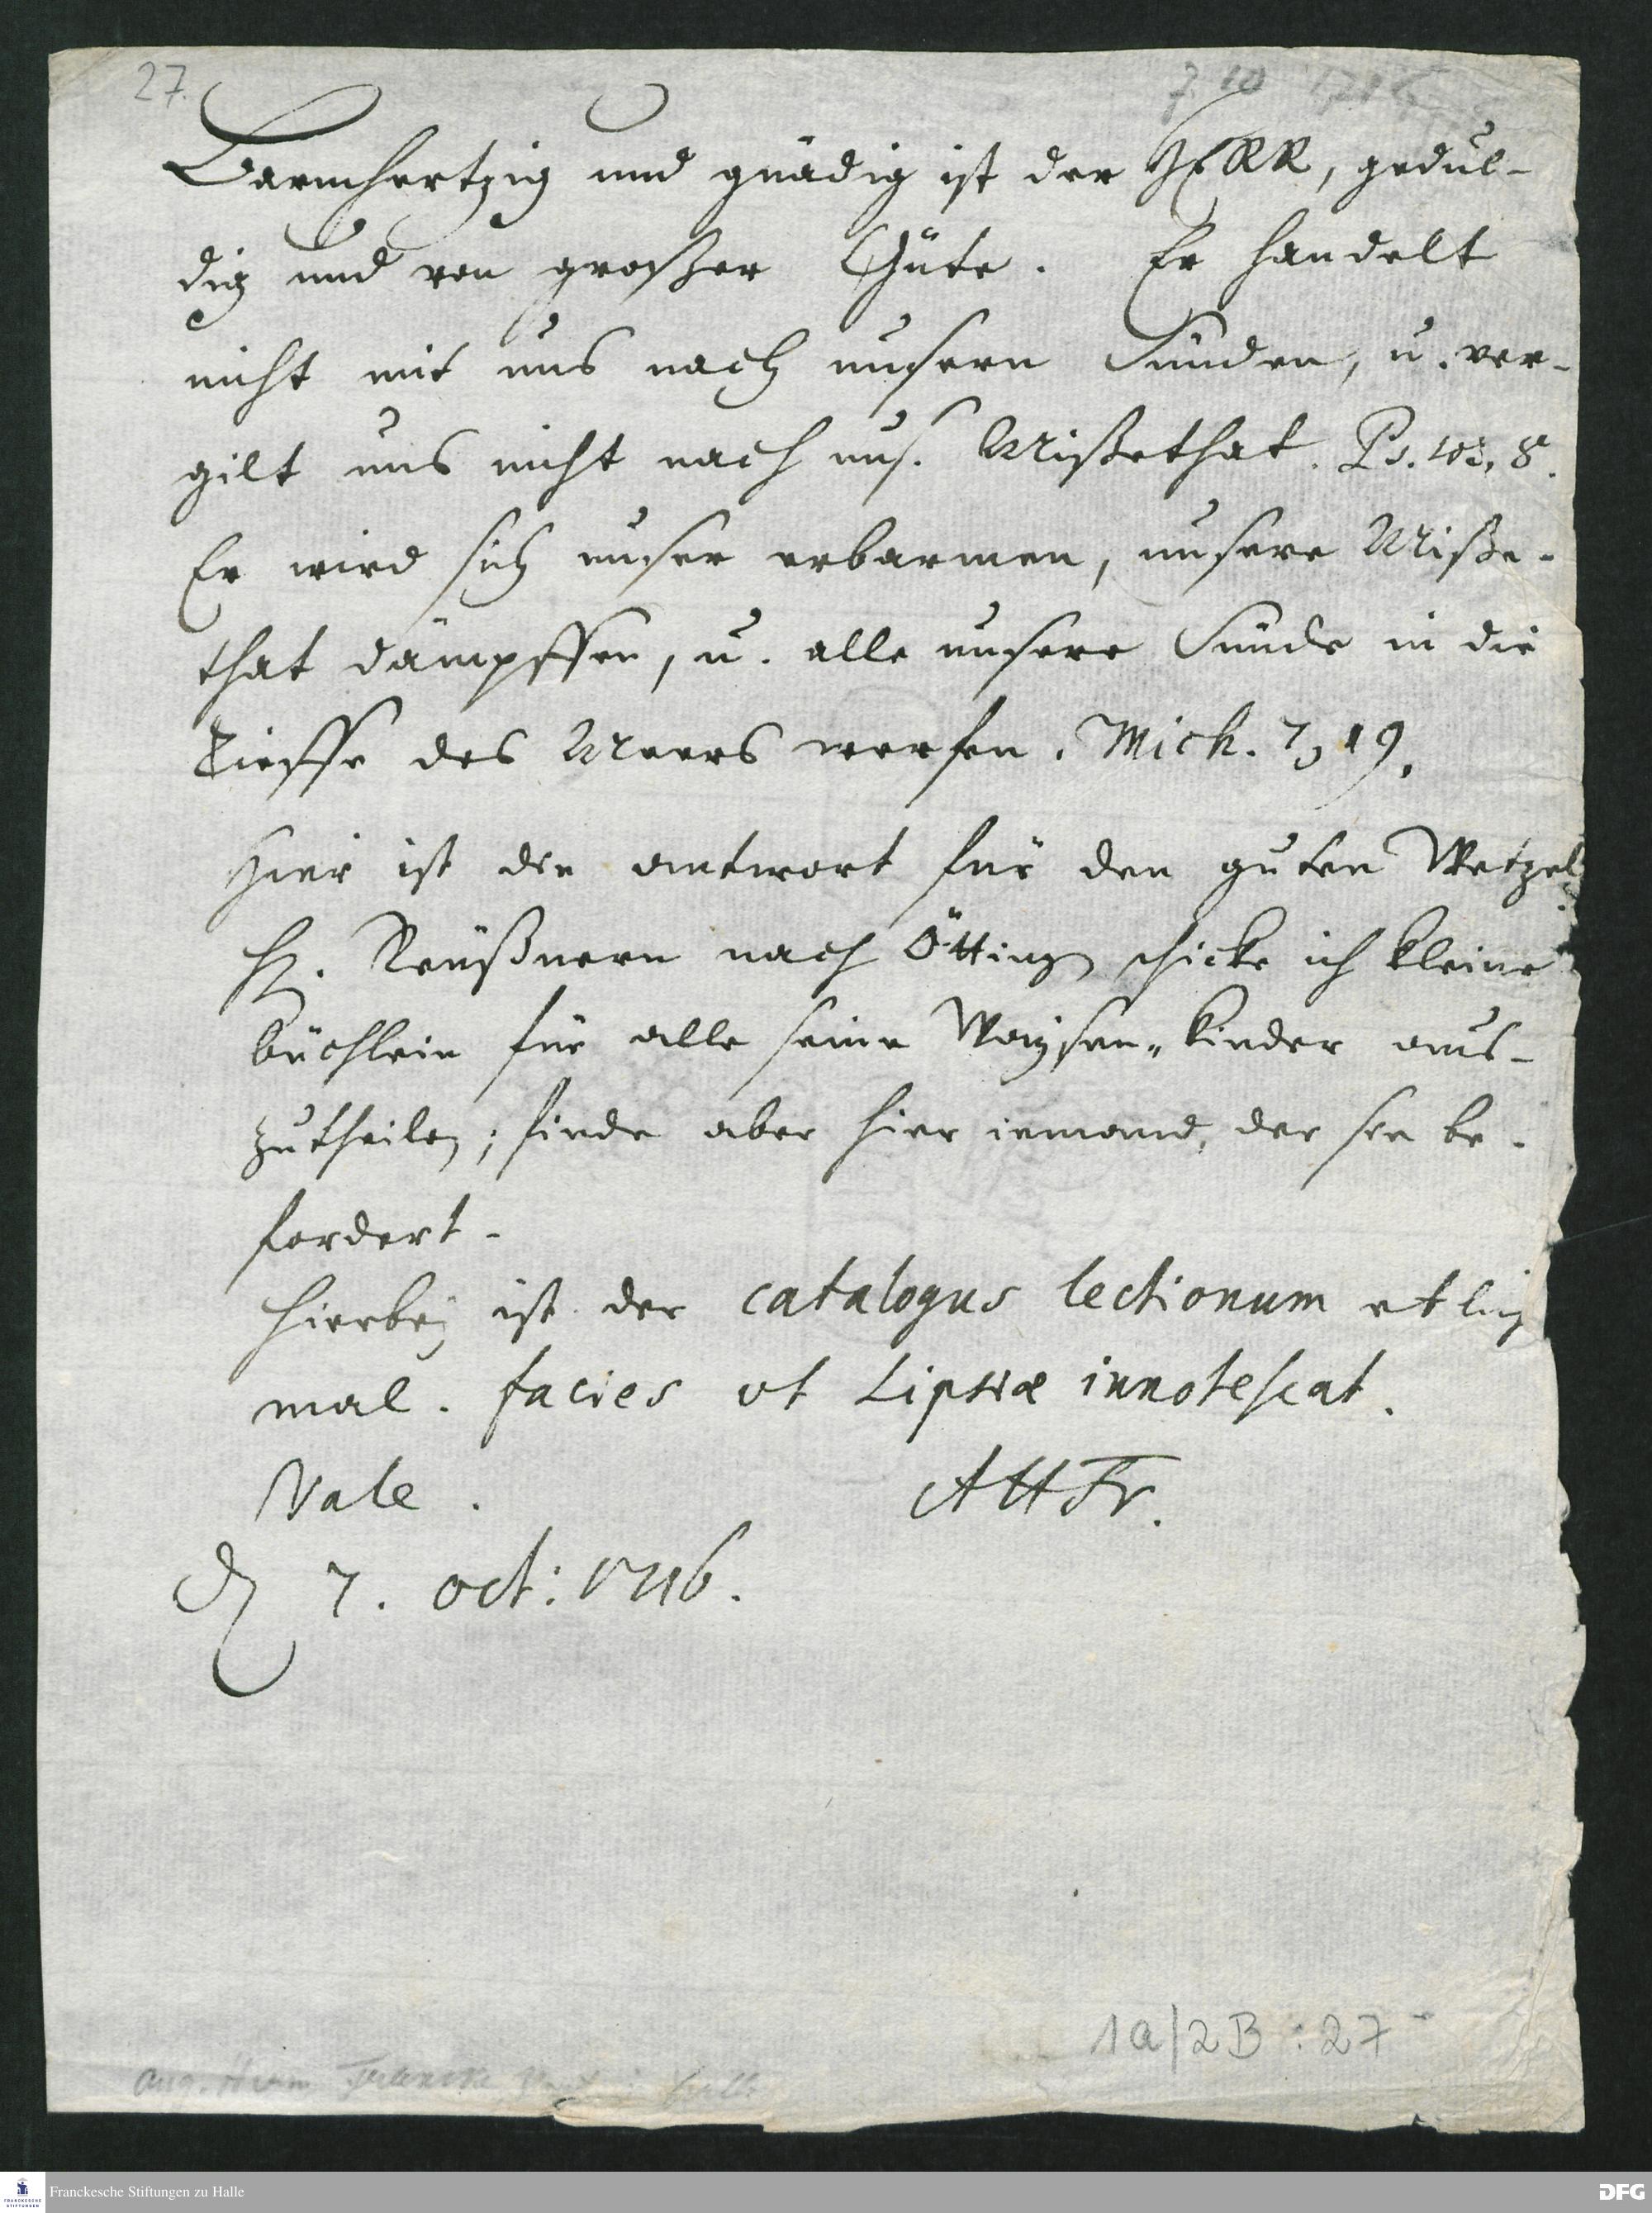 27.
7. 10 1716
Barmhertzig und gnädig ist der HERR, gedul-
dig und von großer Güte. Er handelt
nicht mit uns nach unsern Sünden, u. ver-
gilt uns nicht nach uns. Mißethat. Ps. 103, 8.
Er wird sich unser erbarmen, unsere Miße-
that dämpffen, u. alle unsere Sünde in die
Tieffe des Meers werfen. Mich. 7, 19.
Hier ist die antwort für den guten Wetzel
H. Neüßnern nach Ötting schicke ich kleine
büchlein für alle seine Waysen-kinder aus-
zutheilen; finde aber hier iemand, der sie be-
fordert.
Hierbey ist der catalogus lectionum etlich
mal. facies ut Lipsiae innotescat.
Vale. AHFr.
d. 7. oct: 1716.
1a/2B:27
Aug. Herm Francke
Franckesche Stiftungen zu Halle
FRANCKESCHE STIFTUNGEN
DFG